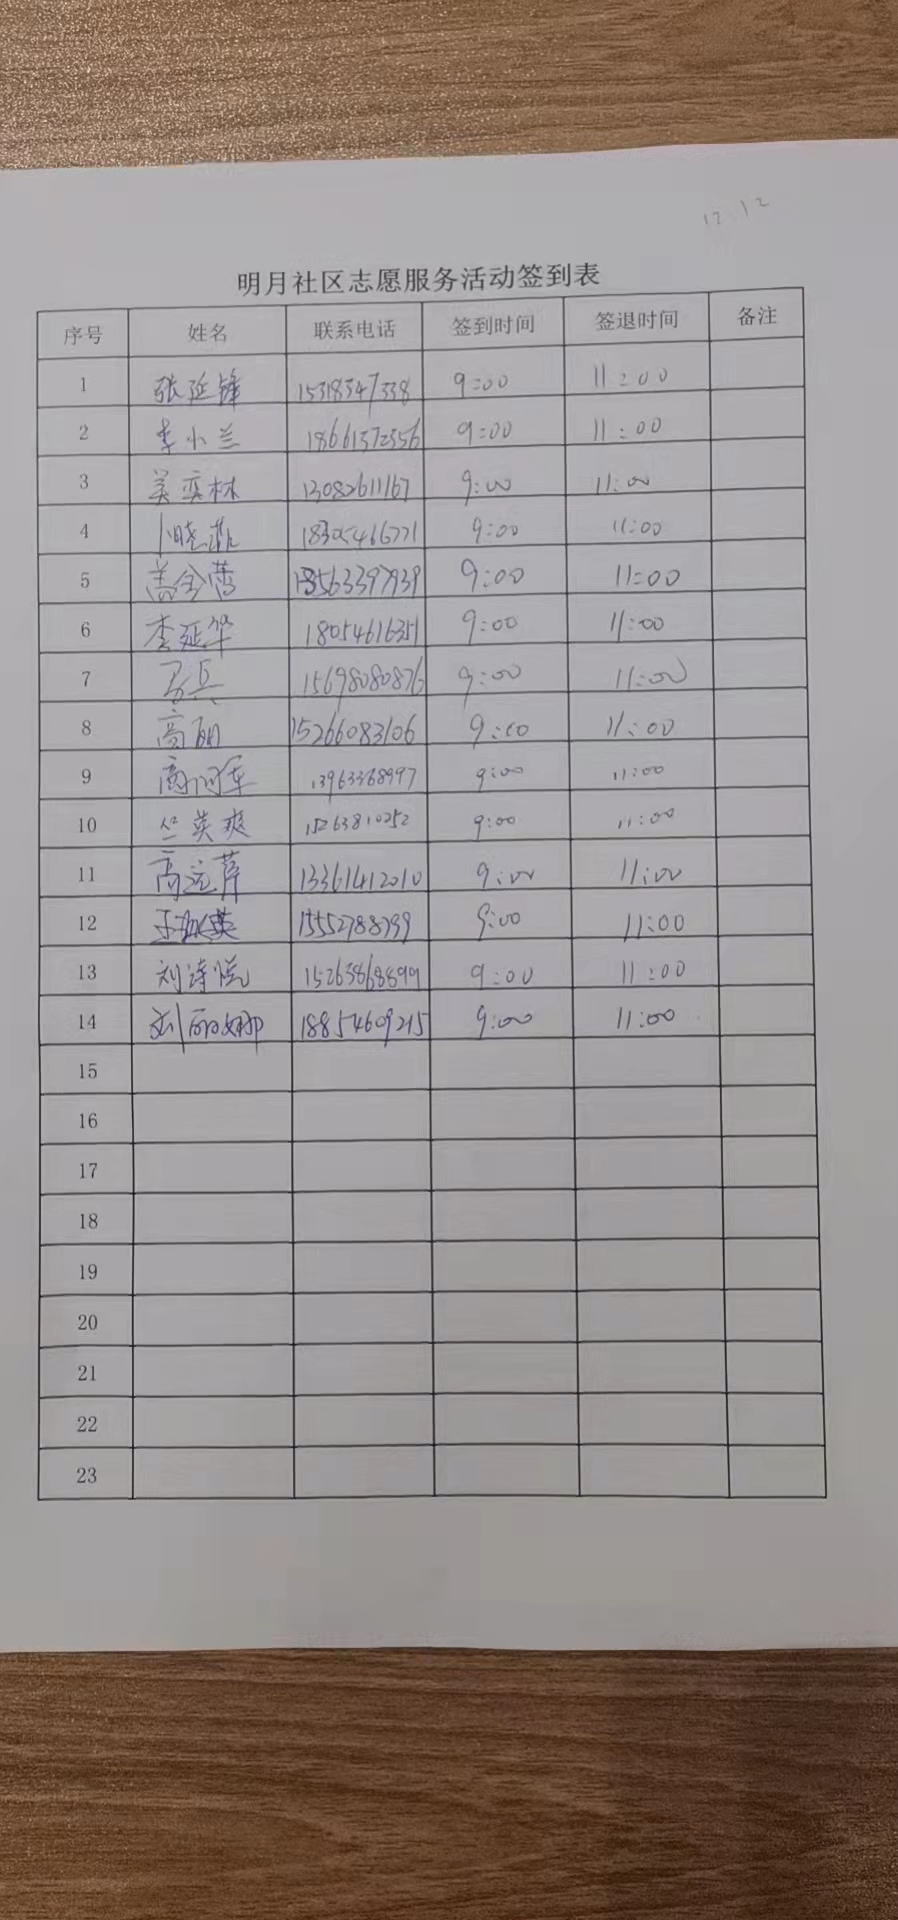 12.12
明月社区志愿服务活动签到表
序号 姓名 联系电话 签到时间 签退时间 备注
1 张延锋 15318347338 9:00 11:00
2 李小兰 18661372356 9:00 11:00
3 吴奕林 13082611167 9:00 11:00
4 卜晓燕 18305466771 9:00 11:00
5 盖全 18563397939 9:00 11:00
6 李延华 18054616351 9:00 11:00
7 兵 15698080876 9:00 11:00
8 高丽 15266083106 9:00 11:00
9 军 13963368997 9:00 11:00
10 竺英爽 15263810252 9:00 11:00
11 高远萍 13361412010 9:00 11:00
12 王 英 15552788799 9:00 11:00
13 刘诗悦 15263868899 9:00 11:00
14 刘丽娜 18854609215 9:00 11:00
15
16
17
18
19
20
21
22
23